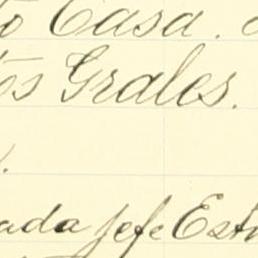 to Casa.
tos Grales.
ada Jefe Est